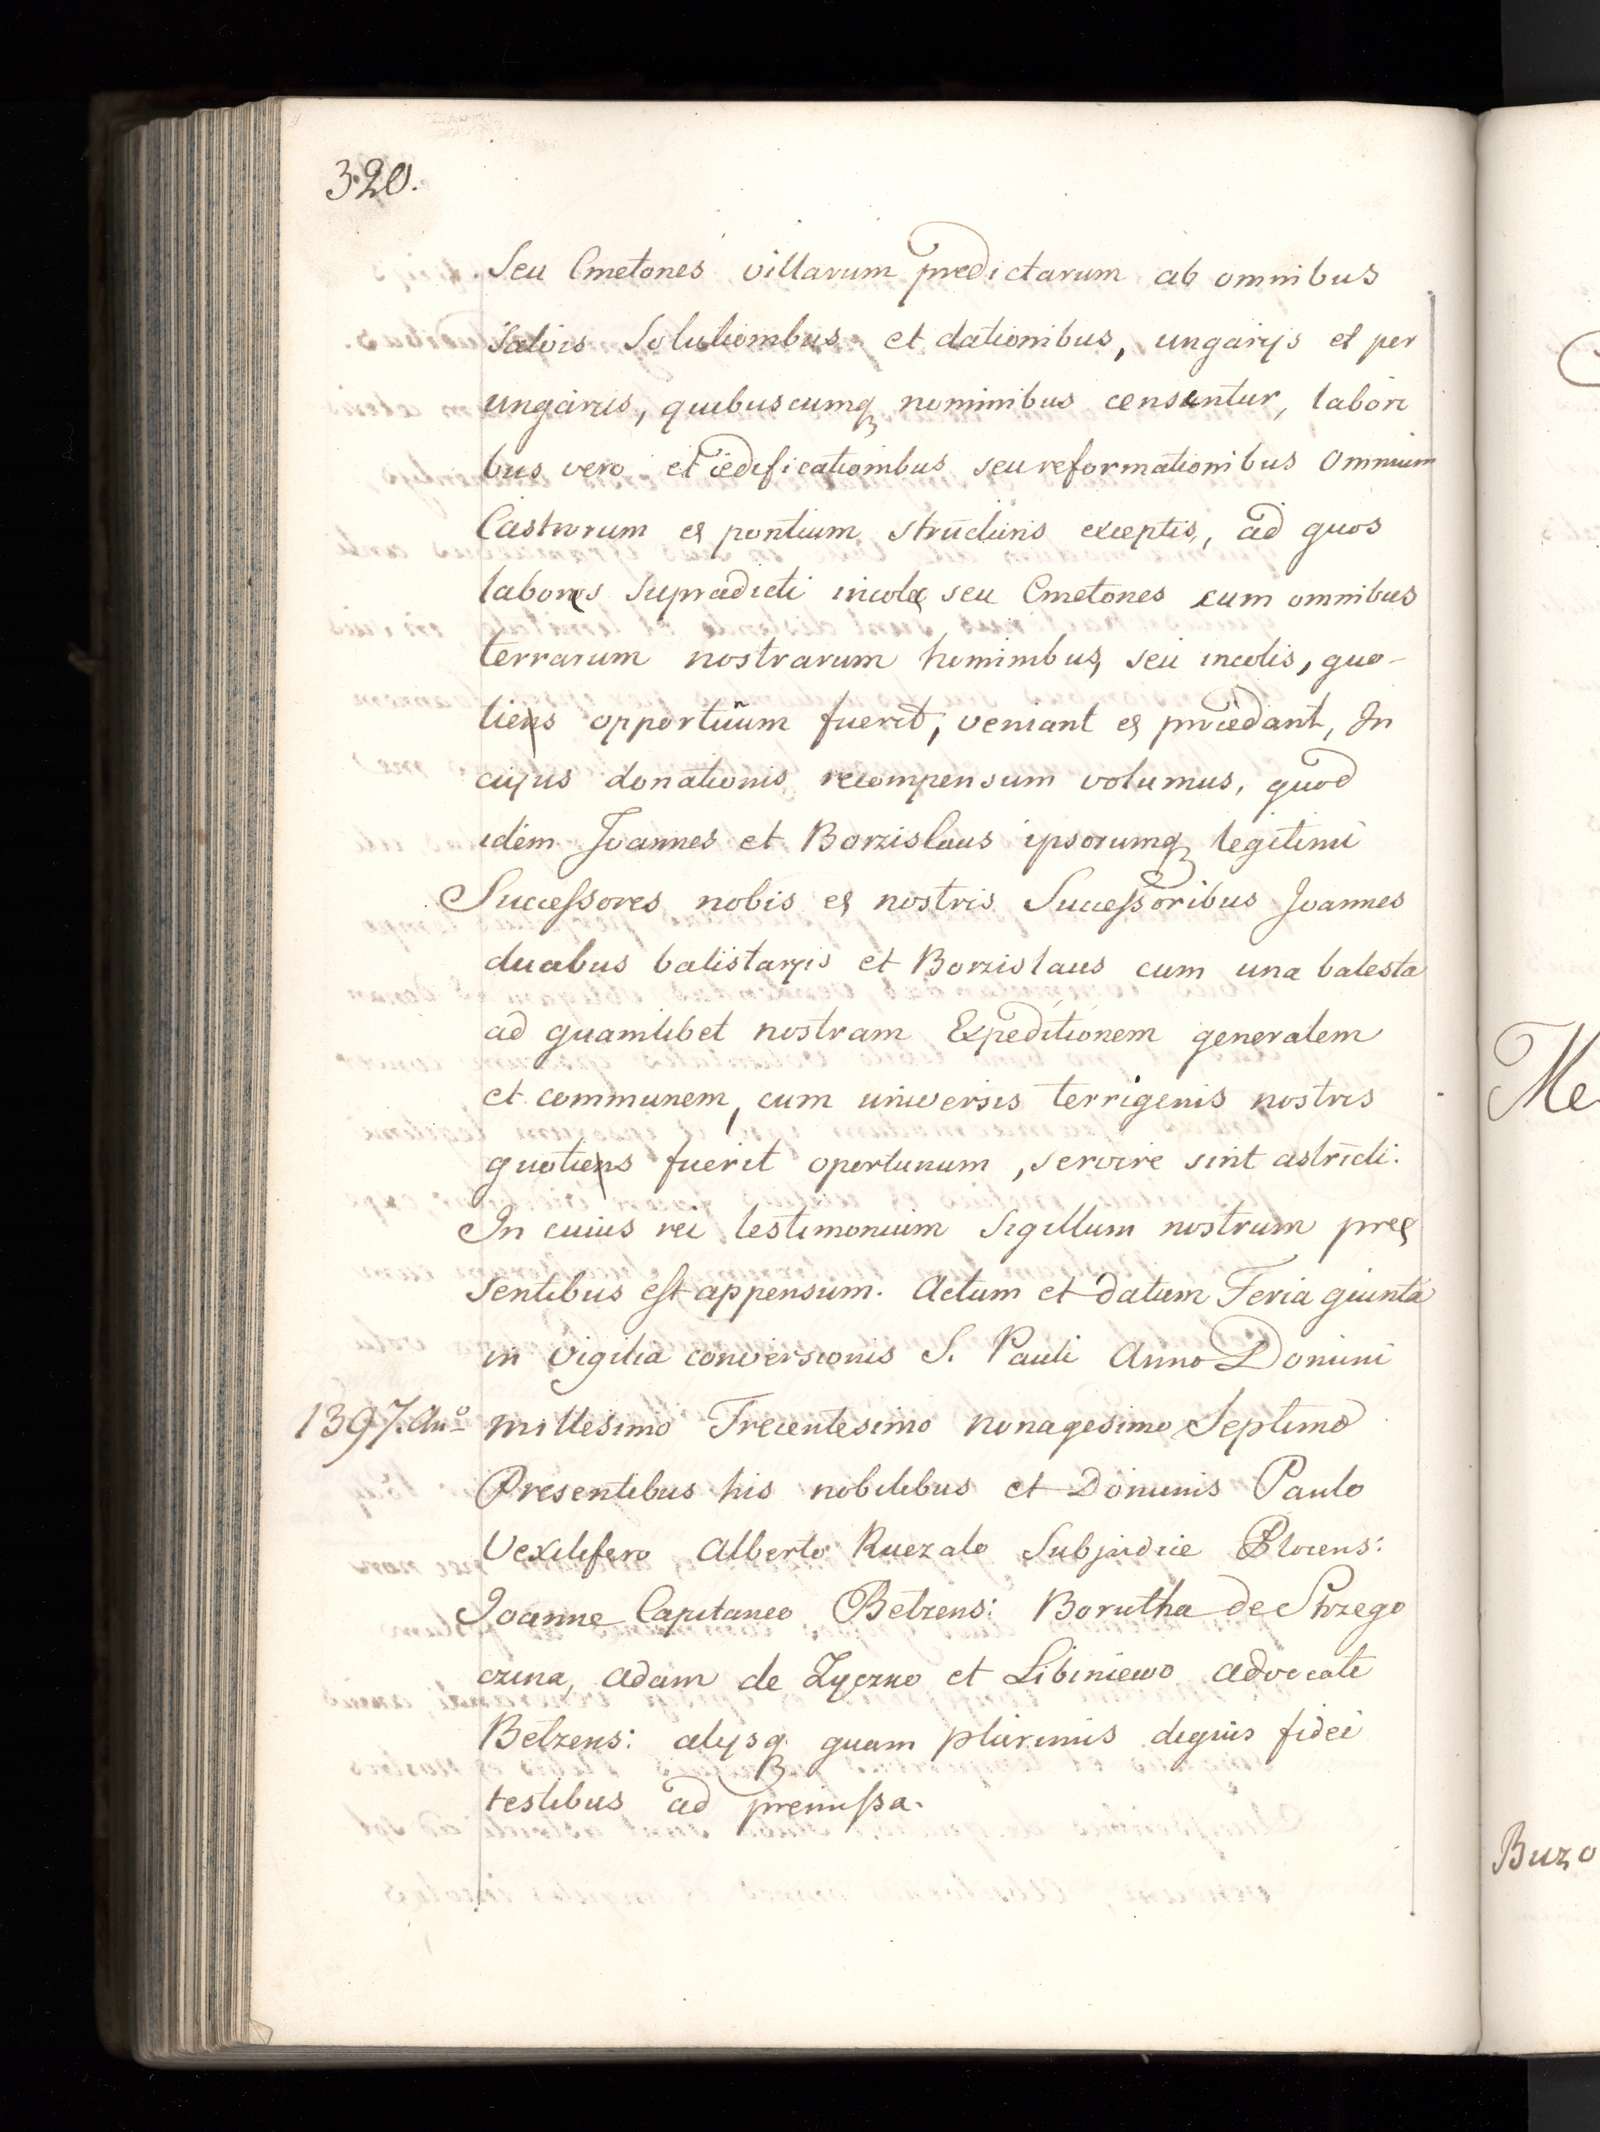 320.
Seu Cmetones villarum predictarum ab omnibus
Salvis Solutionibus et dationibus, ungarijs et per
ungarijs, quibuscumq nominibus censentur, labori
bus vero et ædificationibus seu reformationibus omnium
Castrorum et pontium structuris exceptis, ad quos
labores supradicti incolæ seu Cmetones cum omnibus
terrarum nostrarum hominibus, seu incolis, quo-
tiens opportuum fuerit, veniant et procedant, In
cujus donationis recompensum volumus, quod
idem Joannes et Borzislaus ipsorumq legitimi
Successores nobis et nostris Successoribus Joannes
duabus balistarijs et Borzislaus cum una balesta
ad quamlibet nostram Expeditionem generalem
et communem, cum universis terrigenis nostris
quotiens fuerit oportunum, servire sint astricti.
In cuius rei testimonium Sigillum nostrum præ
sentibus est appensum. Actum et datum Feria quinta
in vigilia conversionis S. Pauli Anno Domini
1397. Anº millesimo Trecentesimo nonagesimo Septimo
Presentibus his nobilibus et Dominis Paulo
Vexilifero Alberto Kuczalo Subjudice Plocens:
Joanne Capitaneo Belzens: Borutha de Strzego
czina, Adam de Zyczko et Libiniewo advocate
Belzens: alijsq quam plurimis dignis fidei
testibus ad premissa.
Me
Buzo